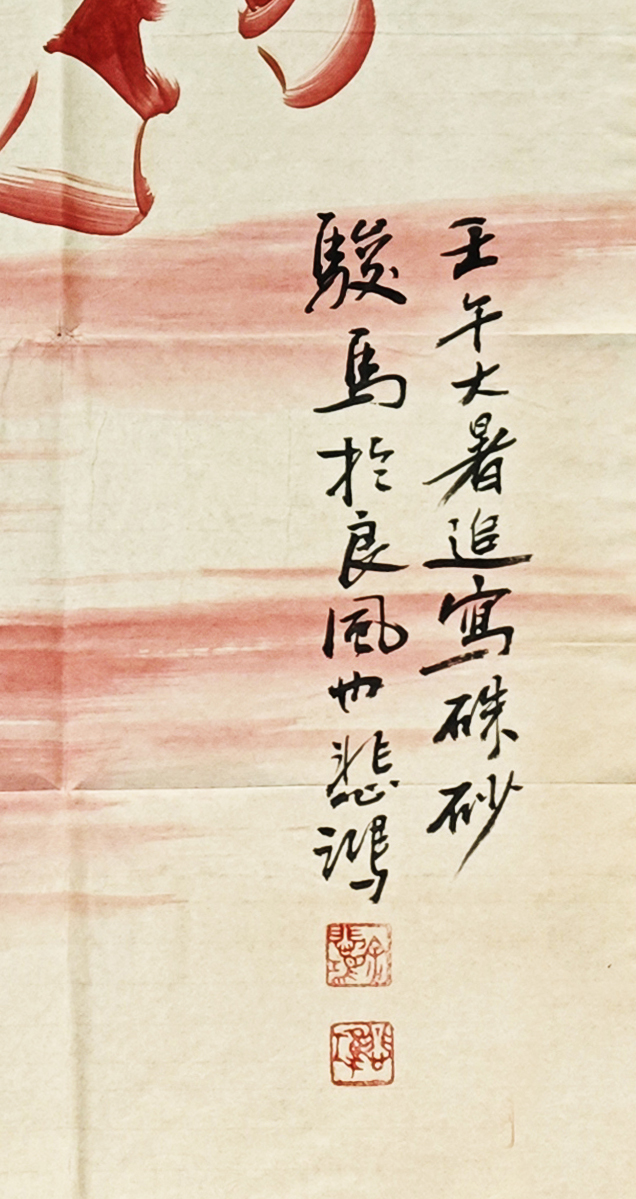 壬午大暑追寫硃砂
駿馬於良風也悲鴻